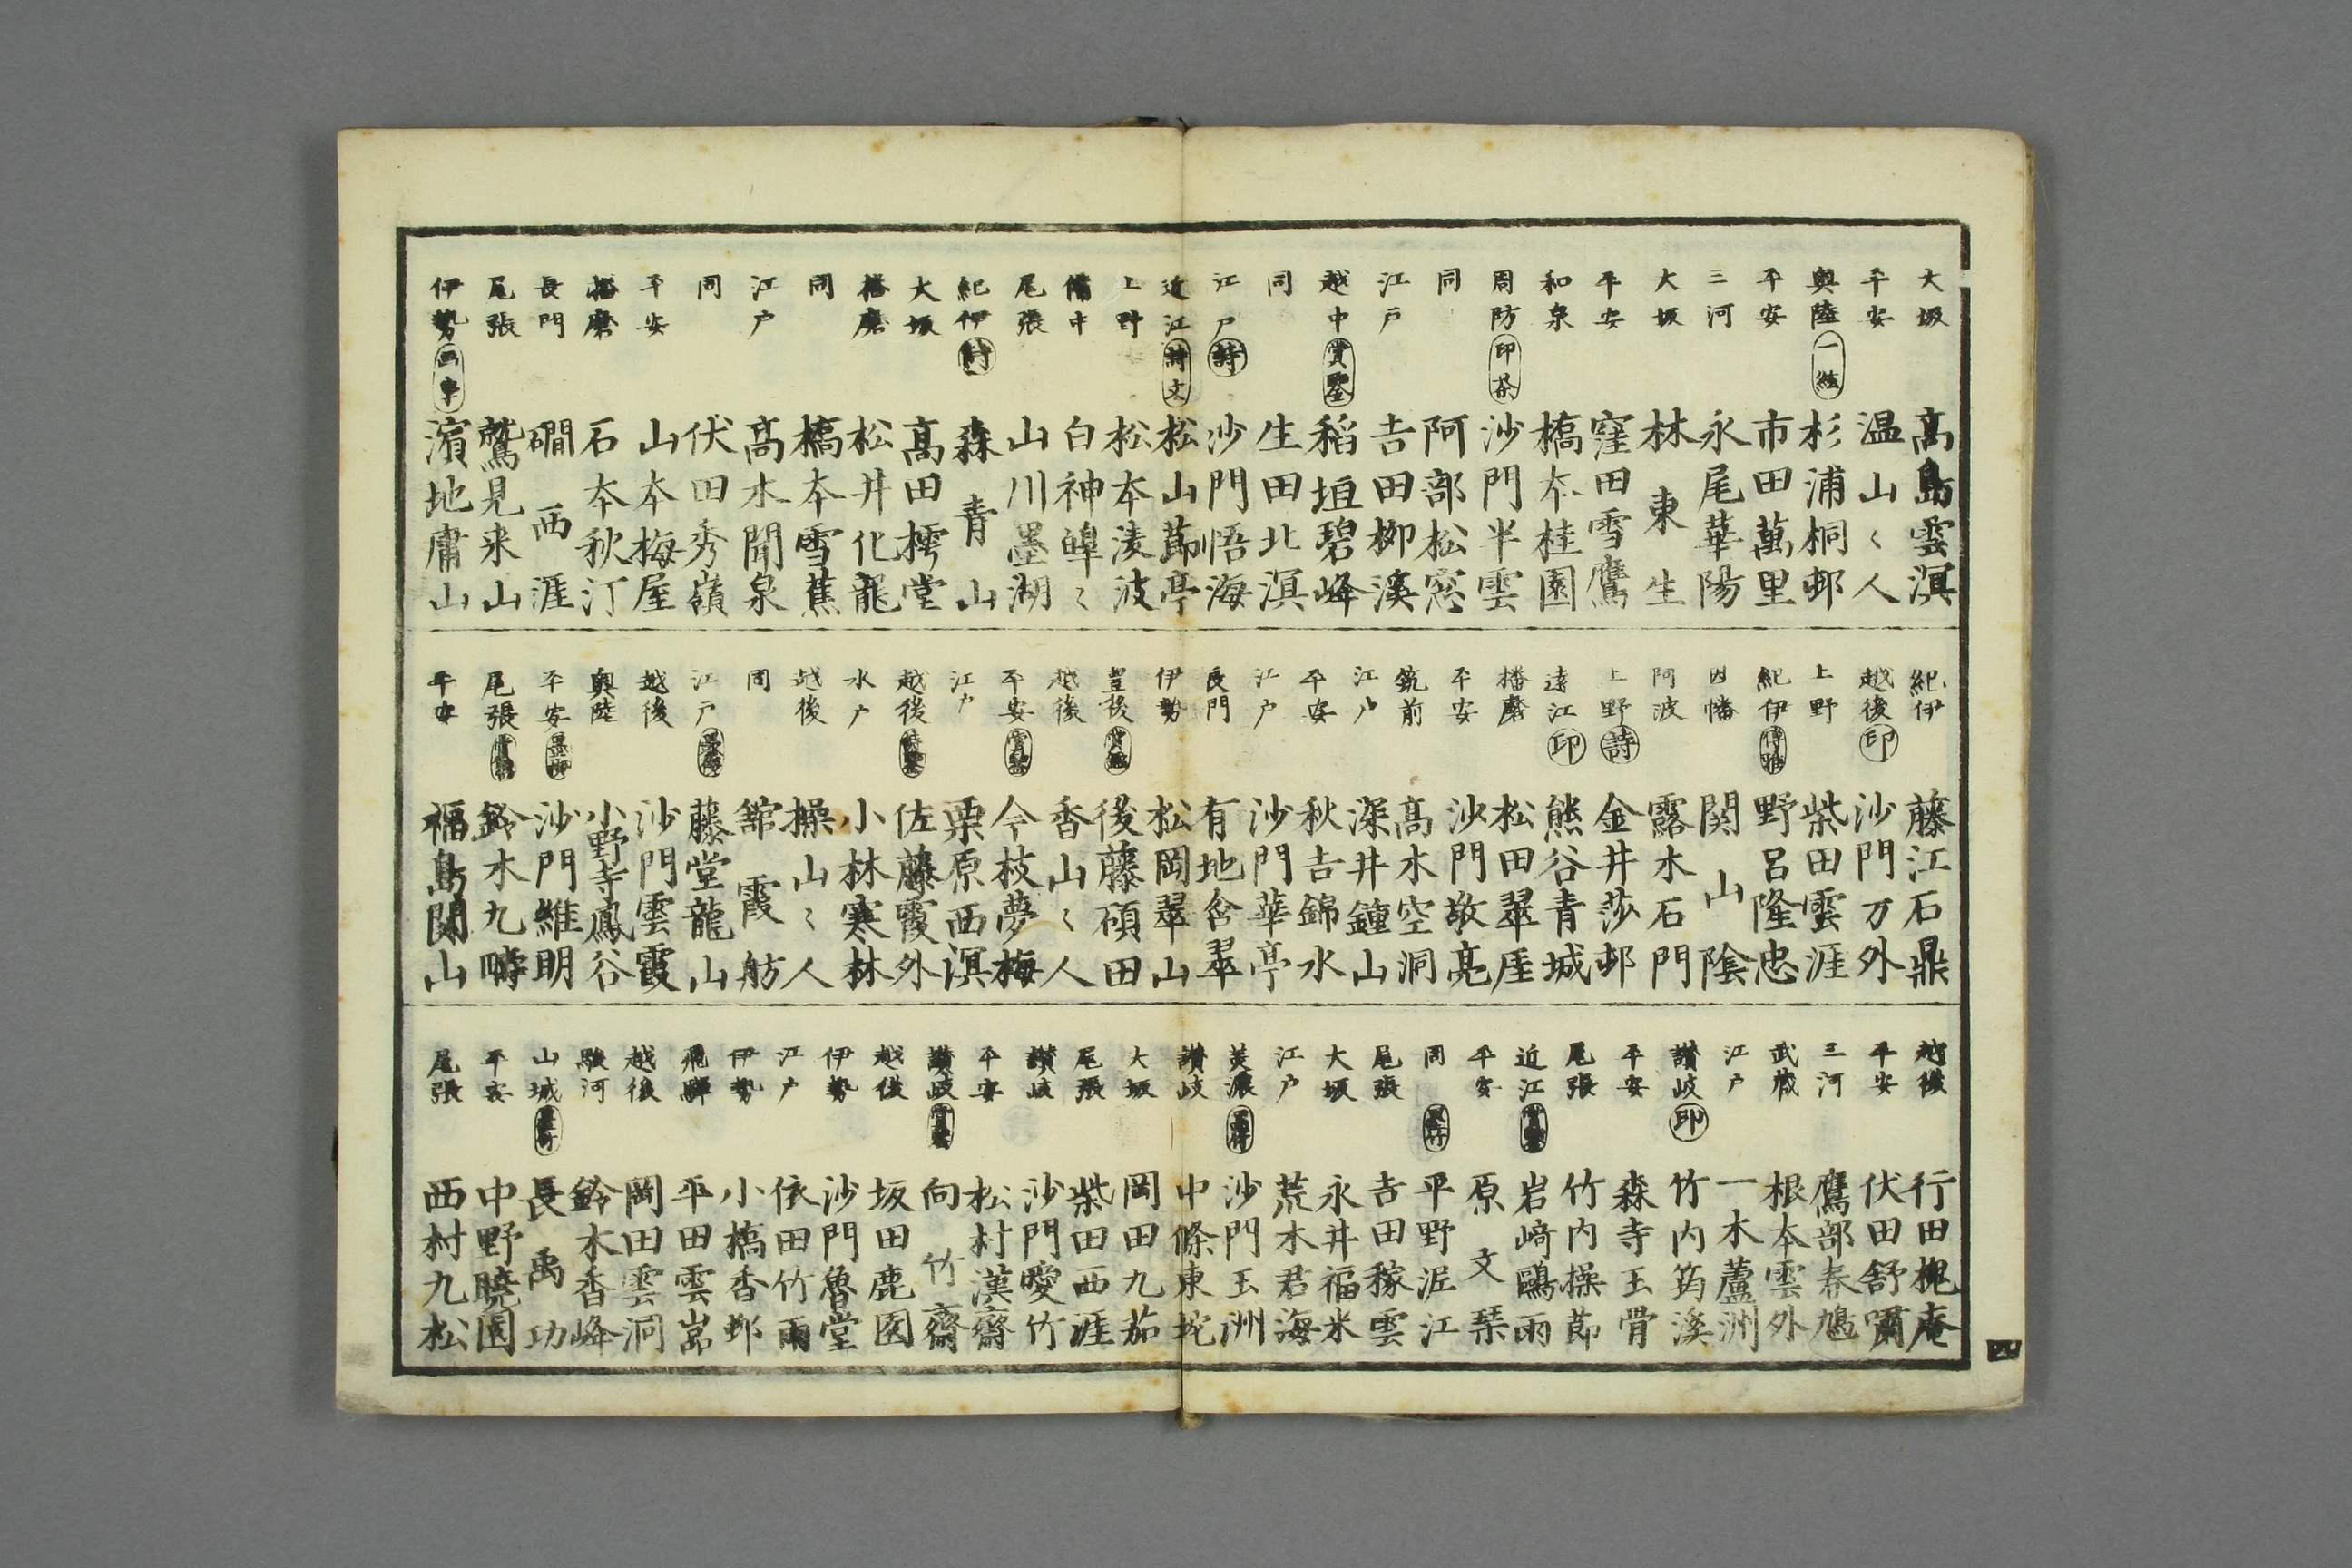 大坂 髙島雲溟
平安 温山〻人
奥陸 一絃 杉浦桐邨
平安 市田萬里
三河 永尾華陽
大坂 林東生
平安 窪田雪鷹
和泉 橋本桂園
周防 印茶 沙門半雲
同 阿部松窓
江戸 吉田柳溪
越中 賞鑒 稻垣碧峰
同 生田北溟
江戸 詩 沙門悟海
近江 詩文 松山蔀亭
上野 松本淩波
備中 白神皥〻
尾張 山川墨湖
紀伊 詩 森青山
大坂 髙田樗堂
播磨 松井化龍
同 橋本雪蕉
江戸 髙木聞泉
同 伏田秀嶺
平安 山本梅屋
播磨 石本秋汀
長門 磵西涯
尾張 鷲見来山
伊勢 濱地庸山
紀伊 藤江石鼎
越後 印 沙門万外
上野 柴田雲涯
紀伊 野呂隆忠
因幡 関山陰
阿波 露木石門
上野 詩 金井莎邨
遠江 印 熊谷青城
播磨 松田翠崖
平安 沙門敬亮
筑前 髙木空洞
江戸 深井鐘山
平安 秋吉錦水
江戸 沙門華亭
長門 有地含翠
伊勢 松岡翠山
豊後 後藤碩田
越後 香山〻人
平安 今枝夢梅
江戸 栗原西溟
越後 佐藤霞外
水戸 小林寒林
越後 操山〻人
同 舘霞舫
江戸 藤堂龍山
越後 沙門雲霞
奥陸 小野寺鳳谷
平安 沙門維明
尾張 鈴木九疇
平安 福島関山
越後 行田槐庵
平安 伏田舒嘯
三河 鷹部春鳩
武蔵 根本雲外
江戸 一木蘆洲
讃岐 印 竹内筠溪
平安 森寺玉骨
尾張 竹内操莭
近江 岩﨑鷗雨
平安 原文琹
同 平野泥江
尾張 吉田稼雲
大坂 永井福米
江戸 荒木君海
美濃 沙門玉洲
讃岐 中條東坨
大坂 岡田九茄
尾張 柴田西涯
讃岐 沙門愛竹
平安 松村漢齋
讃岐 向竹齋
越後 坂田鹿園
伊勢 沙門魯堂
江戸 依田竹雨
伊勢 小橋香邨
飛驒 平田雲嵓
越後 岡田雲洞
駿河 鈴木香峰
山城 長禹功
平安 中野曉園
尾張 西村九松
四